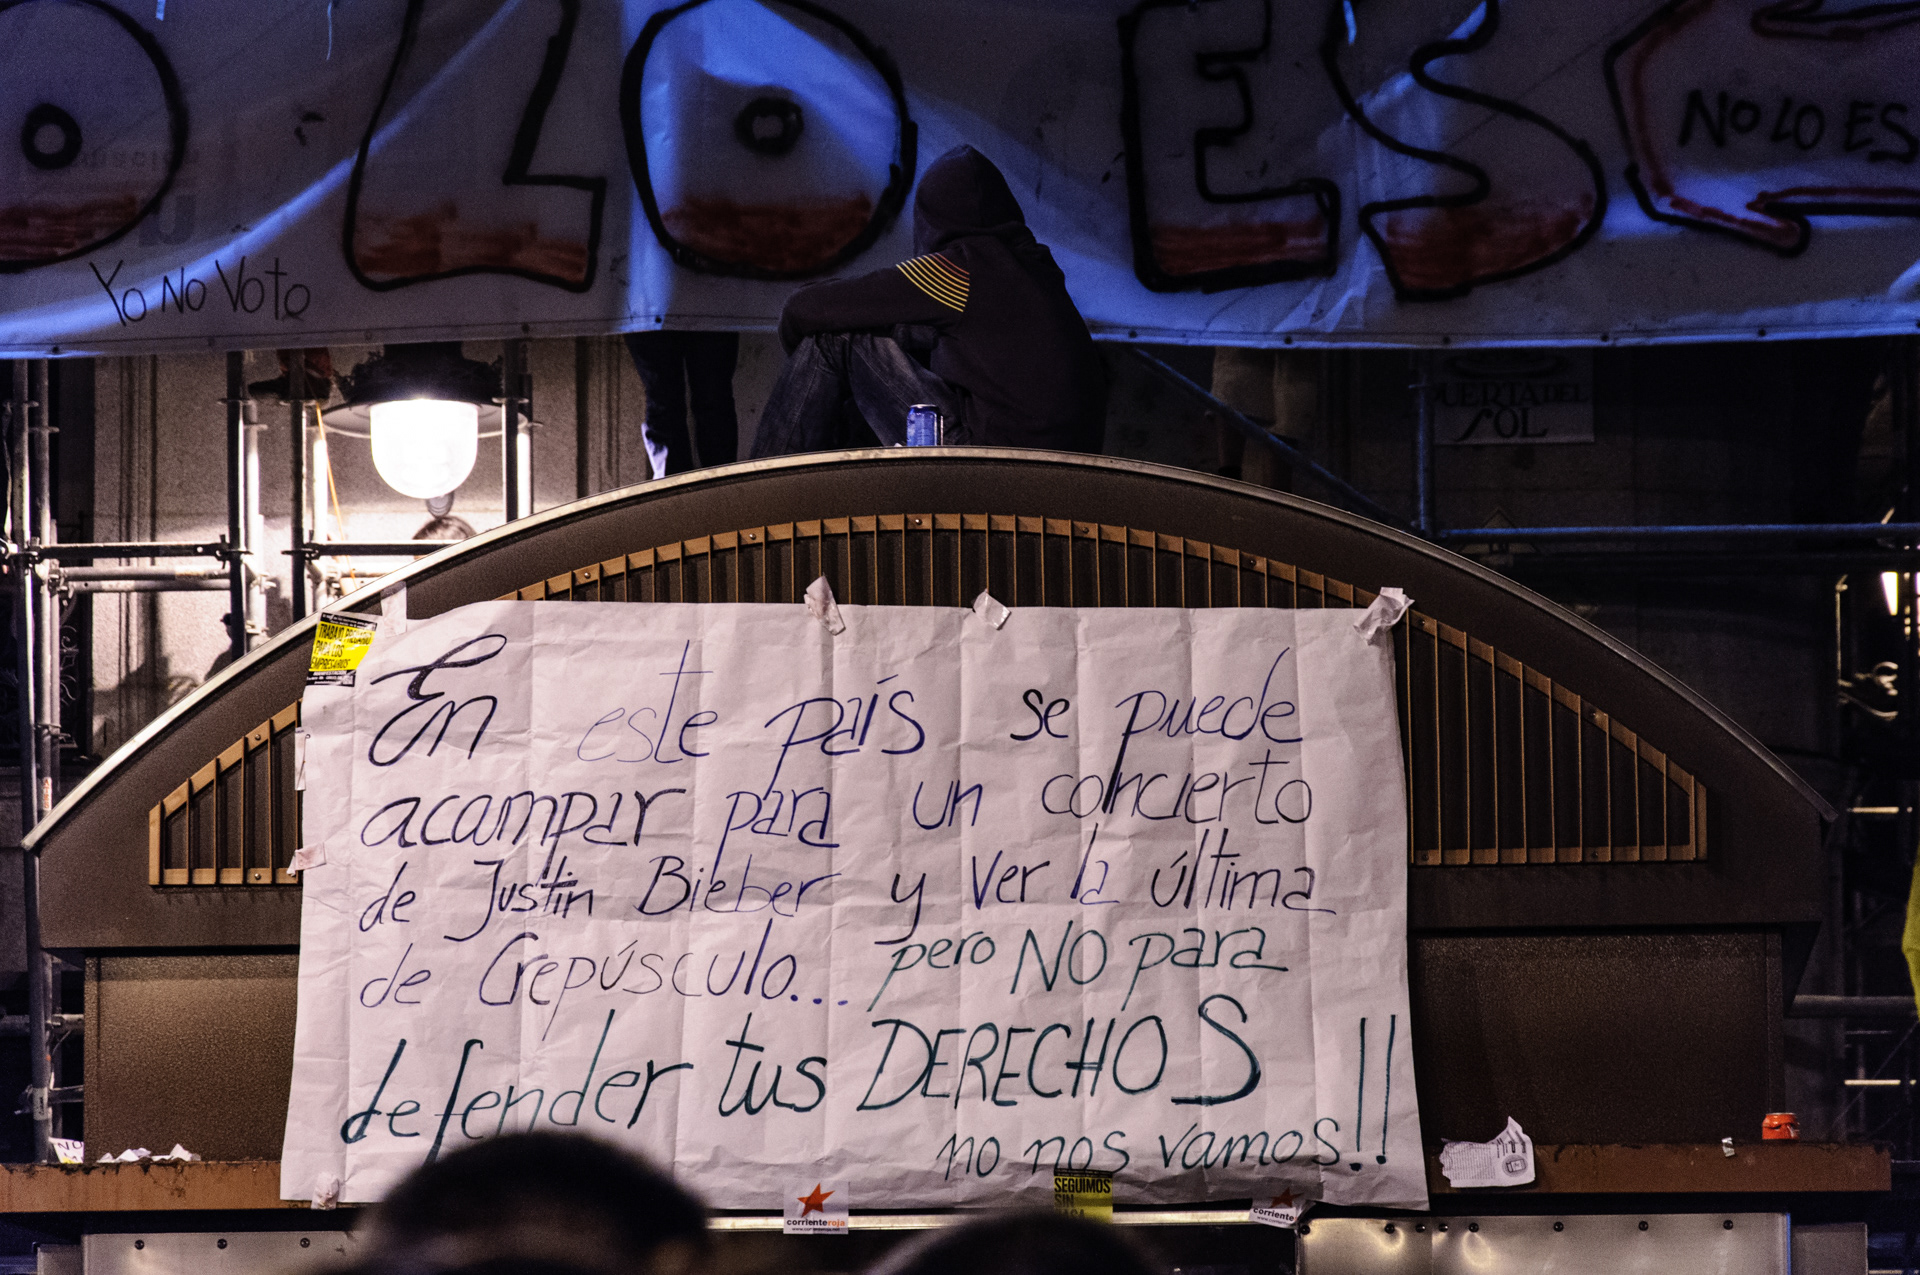 LO ES
NO LO ES
Yo No Voto
PUERTA DEL
SOL
TRABAJO
PARA LOS
EMPRESARIOS
En este país se puede
acampar para un concierto
de Justin Bieber y Ver la última
de Crepúsculo... pero NO para
defender tus DERECHOS
no nos vamos!!
NO
SEGUIMOS
SIN
corrienteroja
corriente